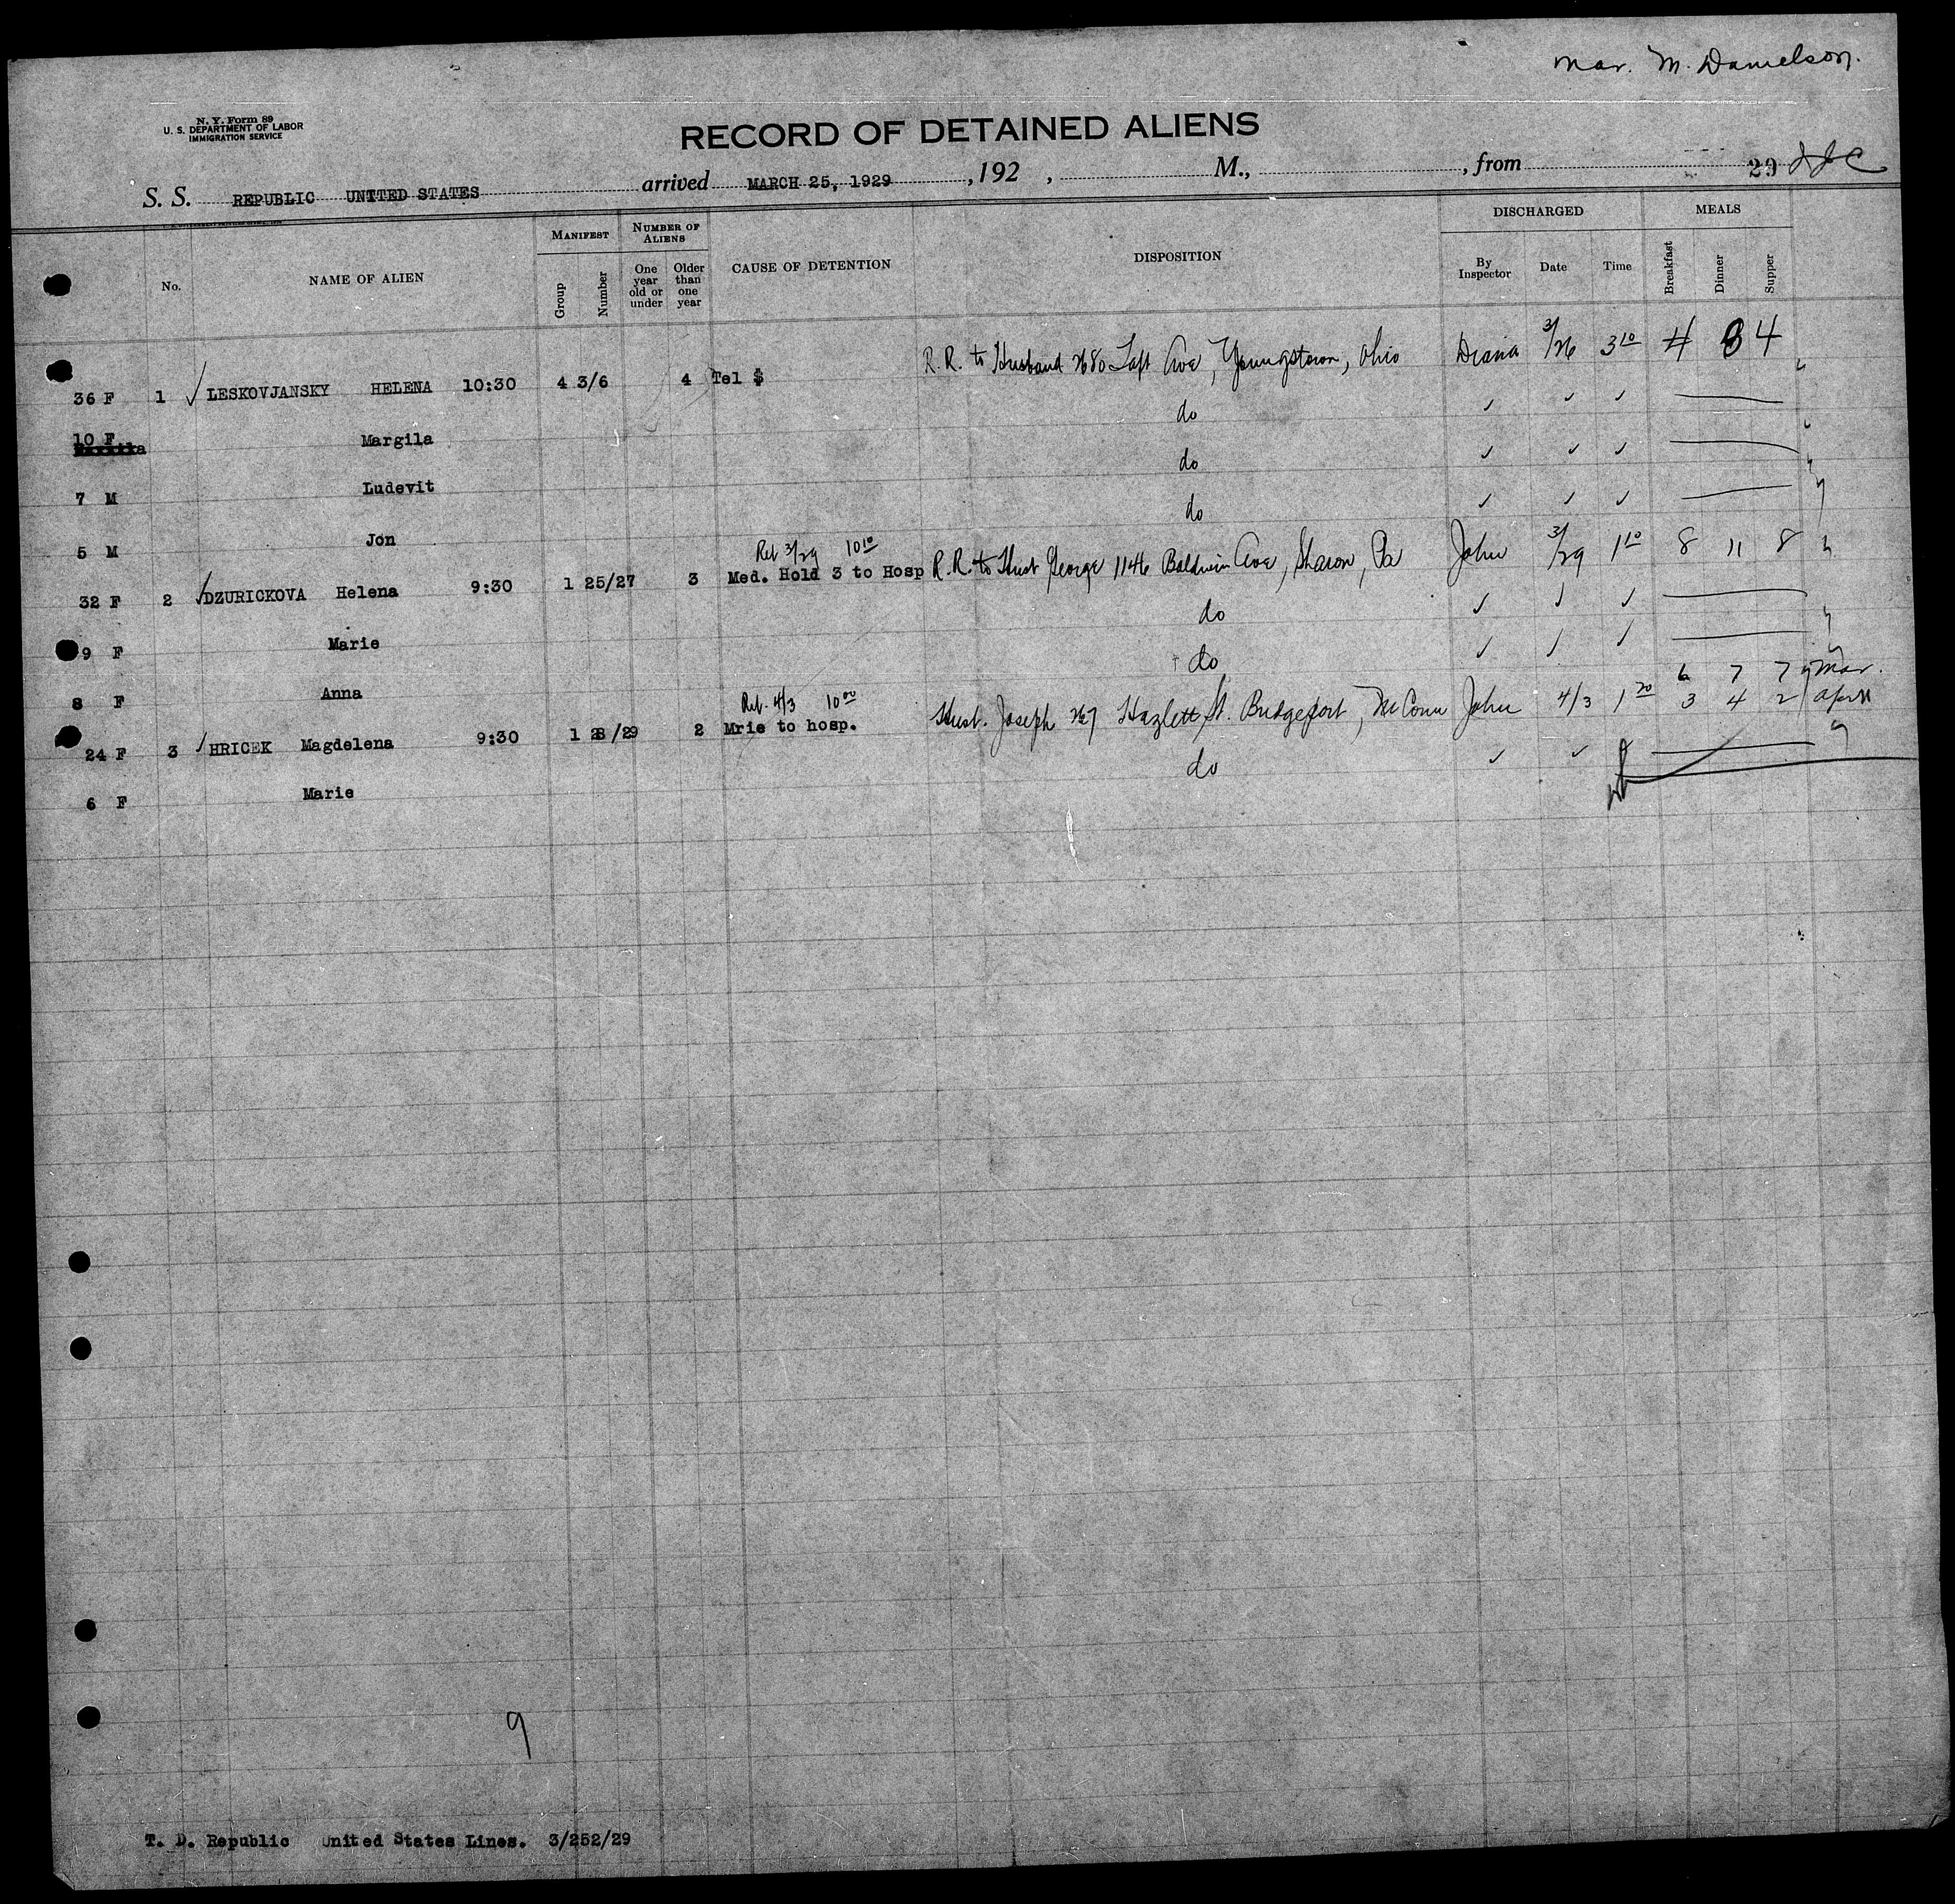 Mar. M. Danielson.
N. Y. Form 89
U. S. DEPARTMENT OF LABOR
IMMIGRATION SERVICE
RECORD OF DETAINED ALIENS
S. S. REPUBLIC UNITED STATES arrived MARCH 25, 1929, 192 , M., , from 29
No. NAME OF ALIEN MANIFEST Group Number NUMBER OF ALIENS One year old or under Older than one year CAUSE OF DETENTION DISPOSITION DISCHARGED By Inspector Date Time MEALS Breakfast Dinner Supper
36 F 1 ✓ LESKOVJANSKY HELENA 10:30 4 3/6 4 Tel $ R.R. to Husband 2680 Taft Ave, Youngstown, Ohio 3/26 3 10 4 8 4
10 F Margila do ✓ ✓ ✓
7 M Ludevit do ✓ ✓ ✓
5 M Jon do ✓ ✓ ✓
Rel 3/29 10 10
32 F 2 ✓ DZURICKOVA Helena 9:30 1 25/27 3 Med. Hold 3 to Hosp R.R. to Hust George 1146 Baldwin Ave, Sharon, Pa John 3/29 1 10 8 11 8
9 F Marie do ✓ ✓ ✓
8 F Anna do ✓ ✓ ✓
6 7 7 Mar.
Rel. 4/3 10 00
24 F 3 ✓ HRICEK Magdelena 9:30 1 28/29 2 Mrie to hosp. Hust. Joseph 267 Hazlett St. Bridgeport, Conn John 4/3 1 20 3 4 2 April
6 F Marie do ✓ ✓
9
T. D. Republic United States Lines. 3/252/29